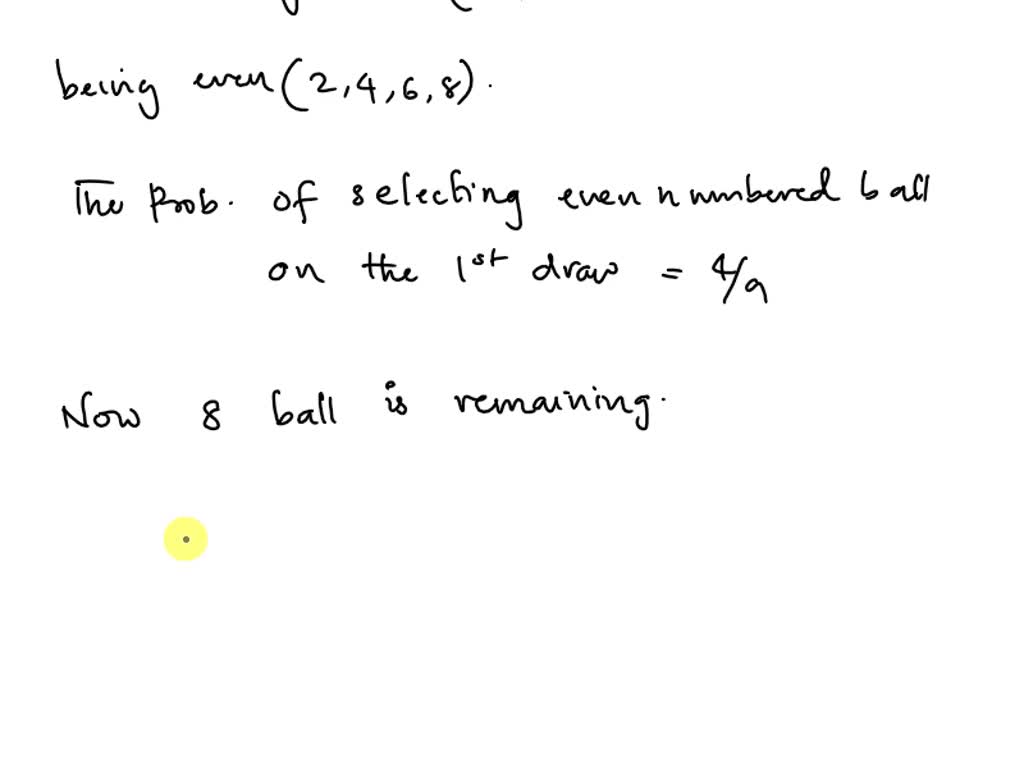 being even (2,4,6,8).
The Prob. of selecting even numbered ball
on the 1st draw = 4/9
Now 8 ball is remaining.